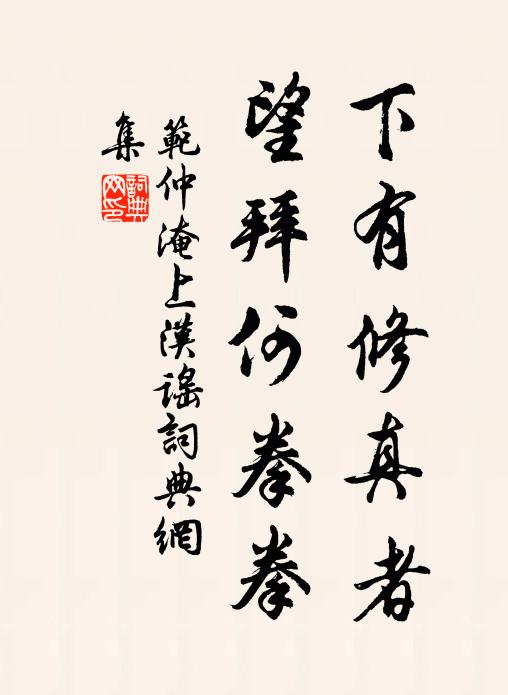 下有修真者
望拜何拳拳
範仲淹上漢謠詞典網
集
詞典网印